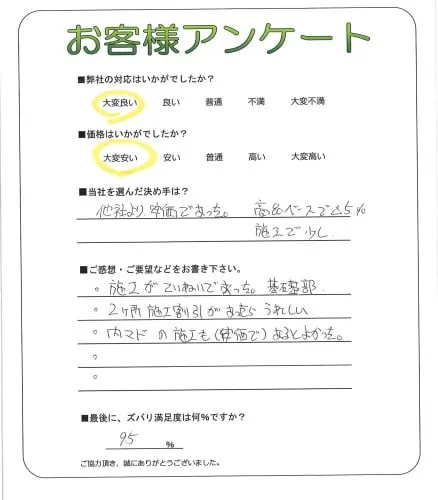 お客様アンケート
■弊社の対応はいかがでしたか?
大変良い 良い 普通 不満 大変不満
■価格はいかがでしたか?
大変安い 安い 普通 高い 大変高い
■当社を選んだ決め手は?
他社より安価であった。 商品ベースで△5%
施工で少し
■ご感想・ご要望などをお書き下さい。
。施工がていねいであった。基礎部
。2ヶ所施工割引があったらうれしい
。内マドの施工も(安価で)あるとよかった。
。
。
■最後に、ズバリ満足度は何%ですか?
95 %
ご協力頂き、誠にありがとうございました。